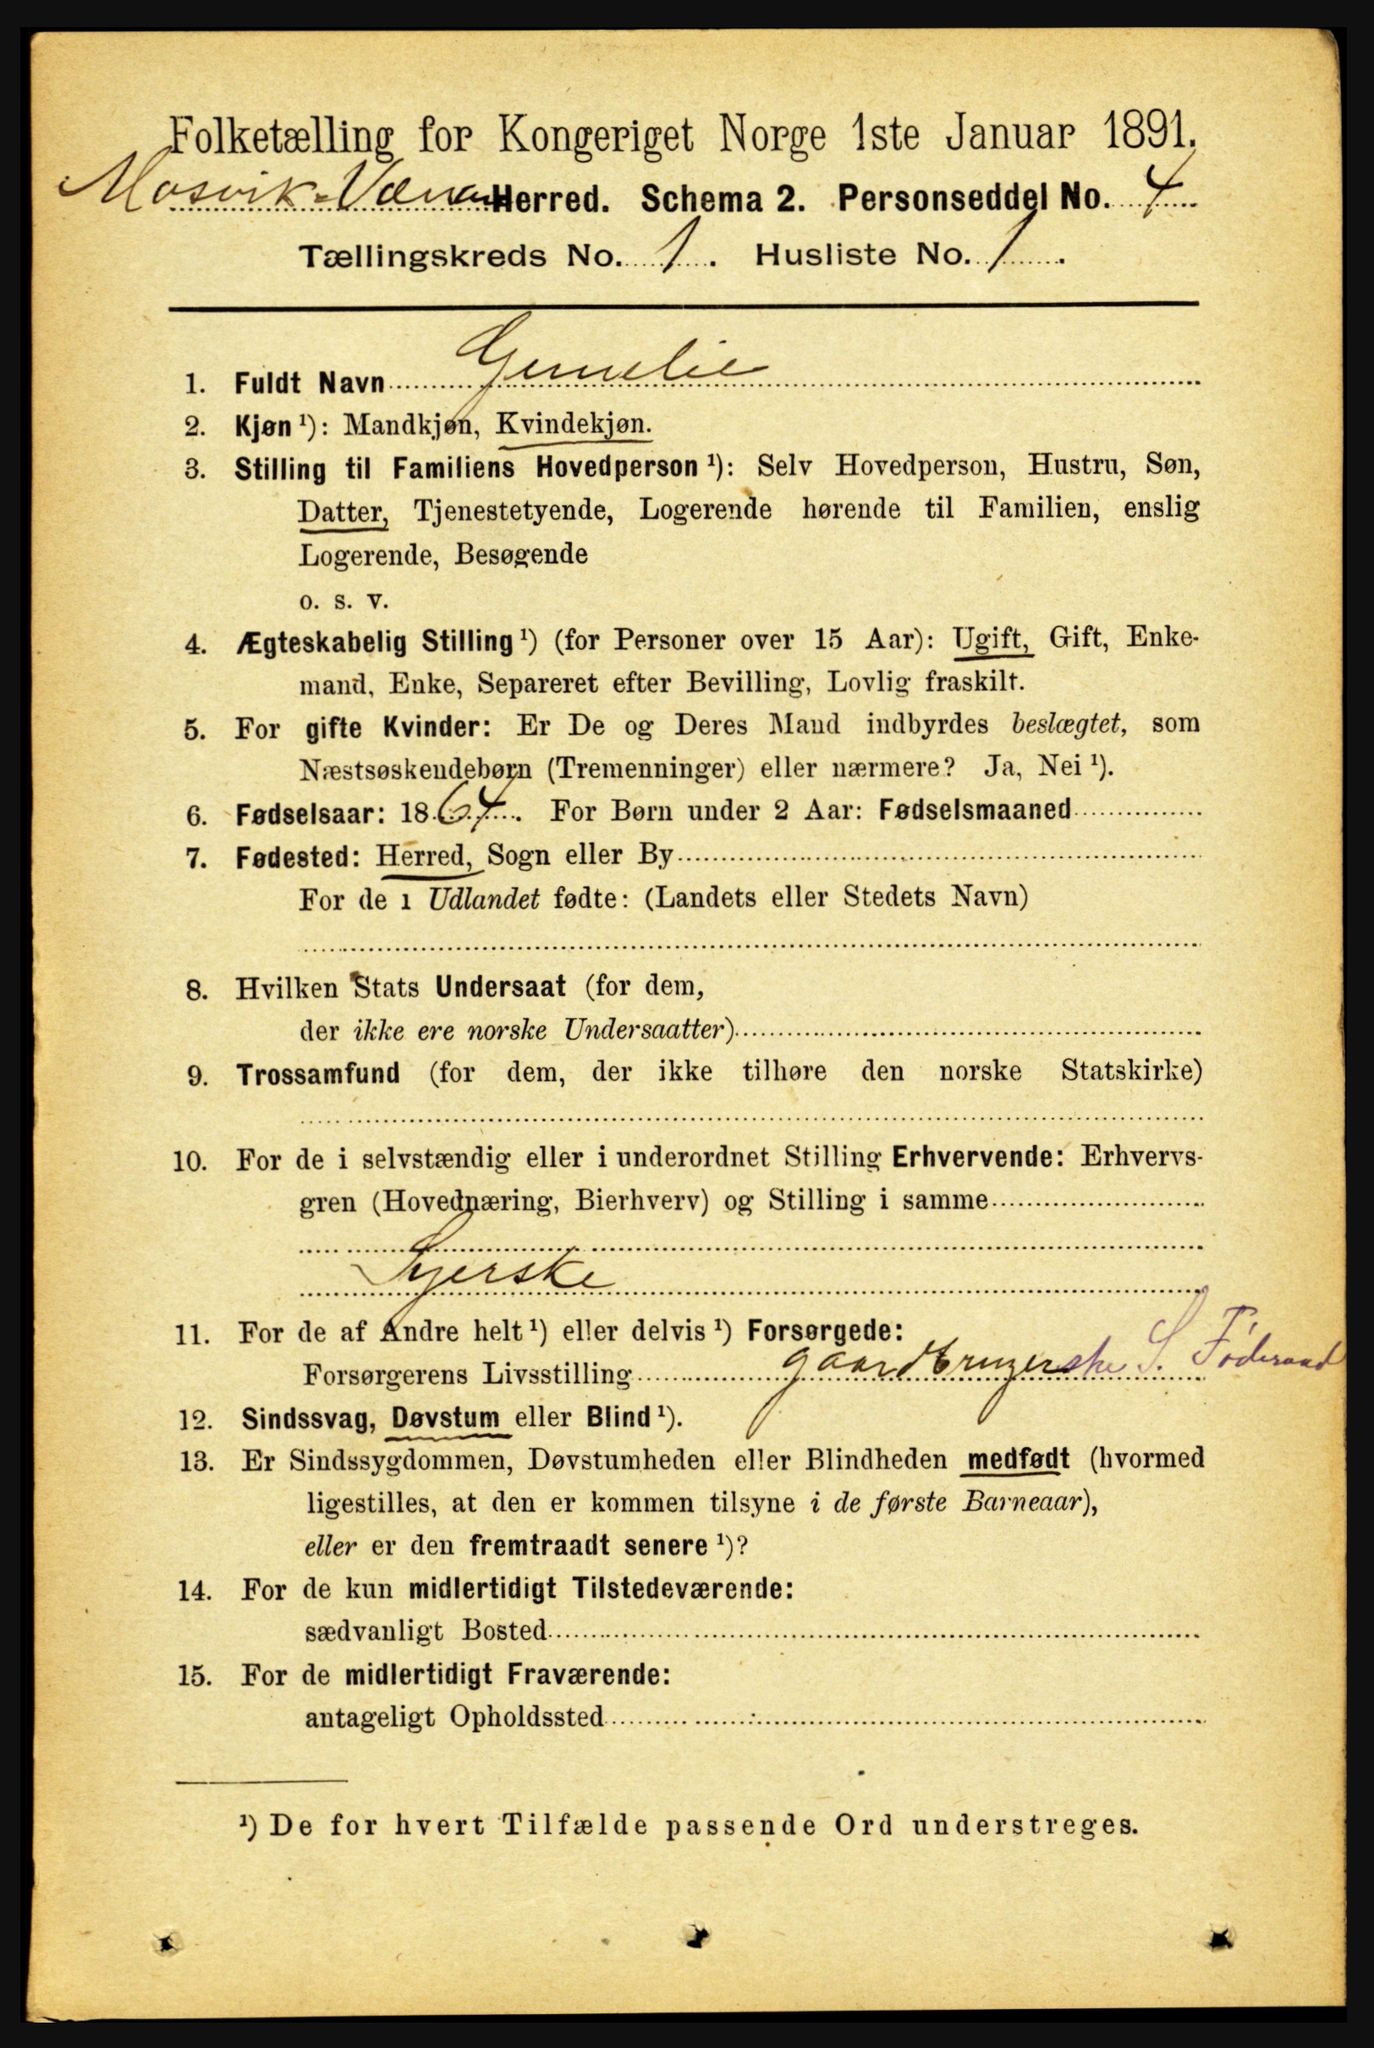 Folketælling for Kongeriget Norge 1ste Januar 1891.
Mosvik-Væran Herred. Schema 2. Personseddel No. 4
Tællingskreds No. 1. Husliste No. 1.
1. Fuldt Navn Gunelie
2. Kjøn ¹): Mandkjøn, Kvindekjøn.
3. Stilling til Familiens Hovedperson ¹): Selv Hovedperson, Hustru, Søn,
Datter, Tjenestetyende, Logerende hørende til Familien, enslig
Logerende, Besøgende
o. s. v.
4. Ægteskabelig Stilling ¹) (for Personer over 15 Aar): Ugift, Gift, Enke-
mand, Enke, Separeret efter Bevilling, Lovlig fraskilt.
5. For gifte Kvinder: Er De og Deres Mand indbyrdes beslægtet, som
Næstsøskendebørn (Tremenninger) eller nærmere? Ja, Nei ¹).
6. Fødselsaar: 1864. For Børn under 2 Aar: Fødselsmaaned
7. Fødested: Herred, Sogn eller By
For de i Udlandet fødte: (Landets eller Stedets Navn)
8. Hvilken Stats Undersaat (for dem,
der ikke ere norske Undersaatter)
9. Trossamfund (for dem, der ikke tilhøre den norske Statskirke)
10. For de i selvstændig eller i underordnet Stilling Erhvervende: Erhvervs-
gren (Hovednæring, Bierhverv) og Stilling i samme
Syerske
11. For de af Andre helt ¹) eller delvis ¹) Forsørgede:
Forsørgerens Livsstilling gaardbrugerske S. Föderaad
12. Sindssvag, Døvstum eller Blind ¹).
13. Er Sindssygdommen, Døvstumheden eller Blindheden medfødt (hvormed
ligestilles, at den er kommen tilsyne i de første Barneaar),
eller er den fremtraadt senere ¹)?
14. For de kun midlertidigt Tilstedeværende:
sædvanligt Bosted
15. For de midlertidigt Fraværende:
antageligt Opholdssted
¹) De for hvert Tilfælde passende Ord understreges.